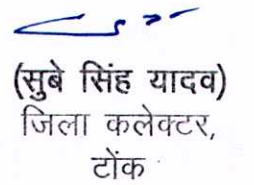 (सुबे सिंह यादव)
जिला कलेक्टर,
टोंक